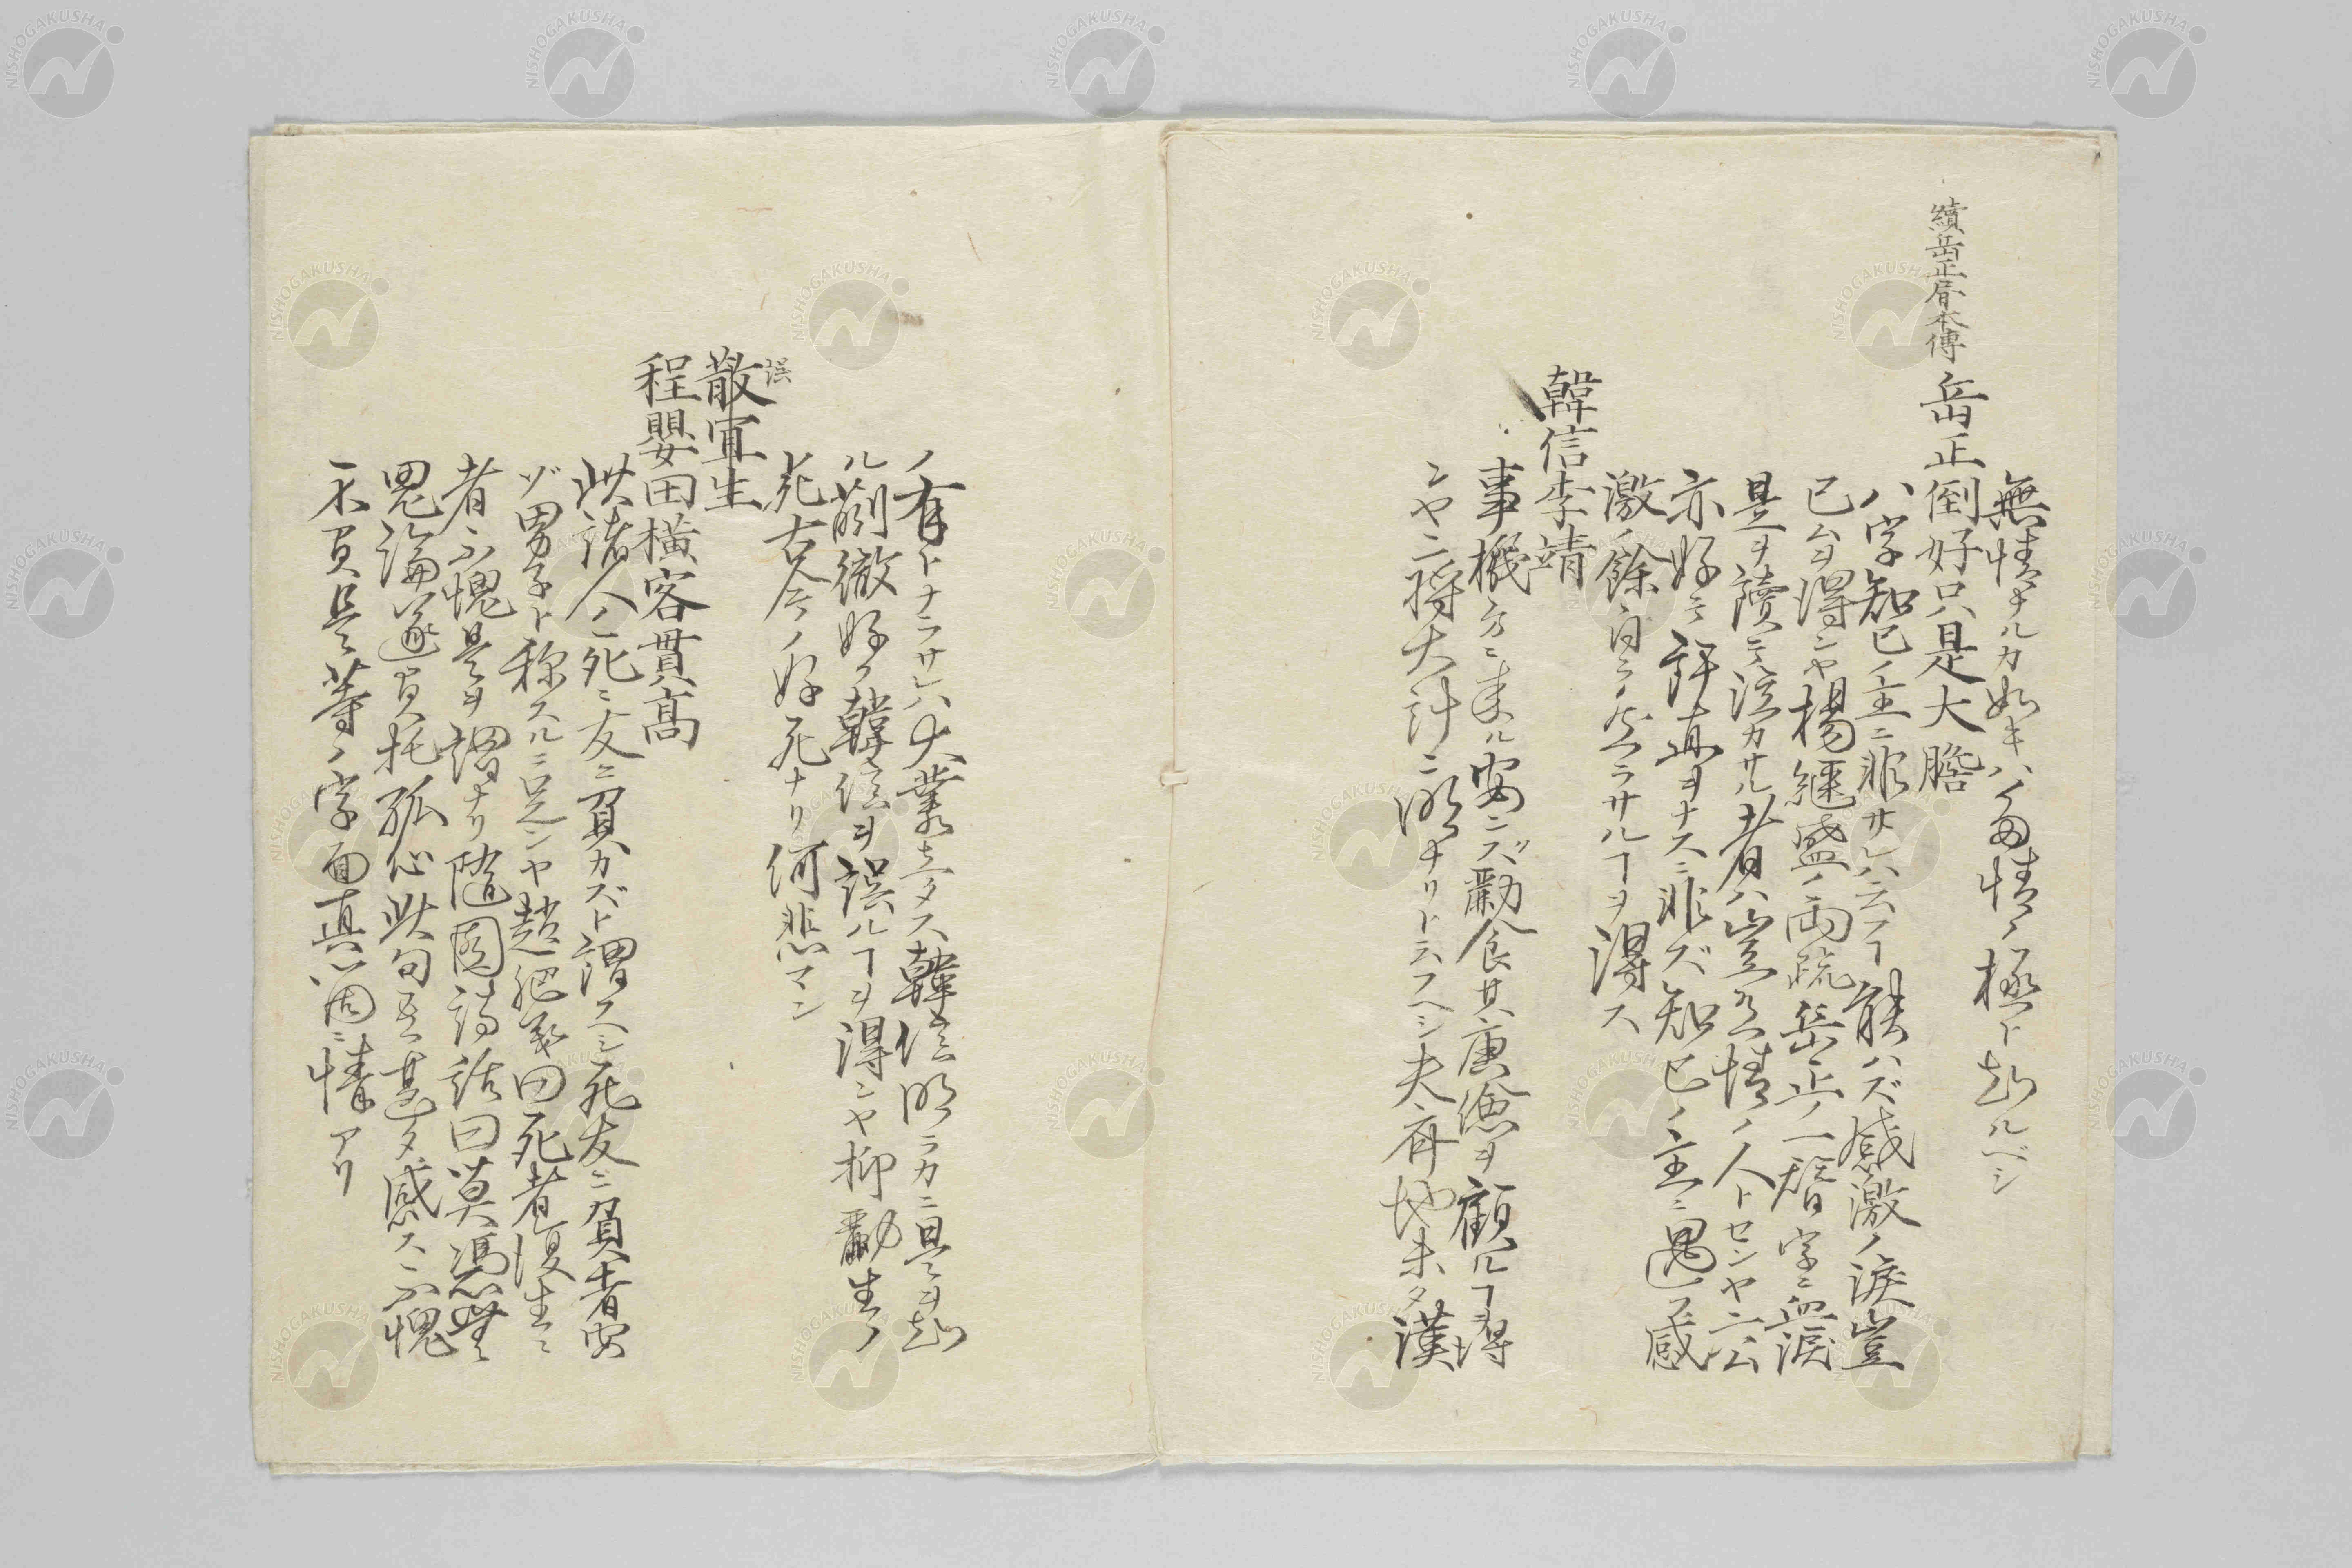 無情ナルカ如キハ多情ノ極ト知ルベシ
續岳正屠本傳
岳正倒好只是大膽
八字知已ノ主ニ非サレハ云フヿ能ハズ感激ノ淚豈
已ムヲ得ンヤ楊繼盛ノ兩疏岳正ノ一替字ニ血淚
是ヲ讀テ泣カサル者ハ豈有情ノ人トセンヤ二公
亦好テ訐直ヲナスニ非ズ知已ノ主ニ遇フ感
激ノ餘自ラ然ラサルヿヲ得ス
韓信李靖
事機方ニ来ル安ンズ酈食其唐儉ヲ顧ルヿヲ得
ンヤ二将大計ニ明ナリト云フヘシ夫斉地未タ漢
ノ有トナラサレハ大業立タス韓信明ラカニ是ヲ知
ル蒯徹好ク韓信ヲ誤ルヿヲ得ンヤ抑酈生ノ
死古今ノ好死ナリ何悲マン
誤
散宜生
程嬰田橫客貫高
此諸人ノ死ニ友ニ負カズト謂フヘシ死友ニ負者安
ゾ男子ト称スルニ足ンヤ趙肥義曰死者復生ニ
者不愧是ヲ謂ナリ隨園詩話曰莫憑無
鬼論遂負托孤心此句吾甚タ感ス不愧
不負是等ノ字面真ニ固ニ情アリ